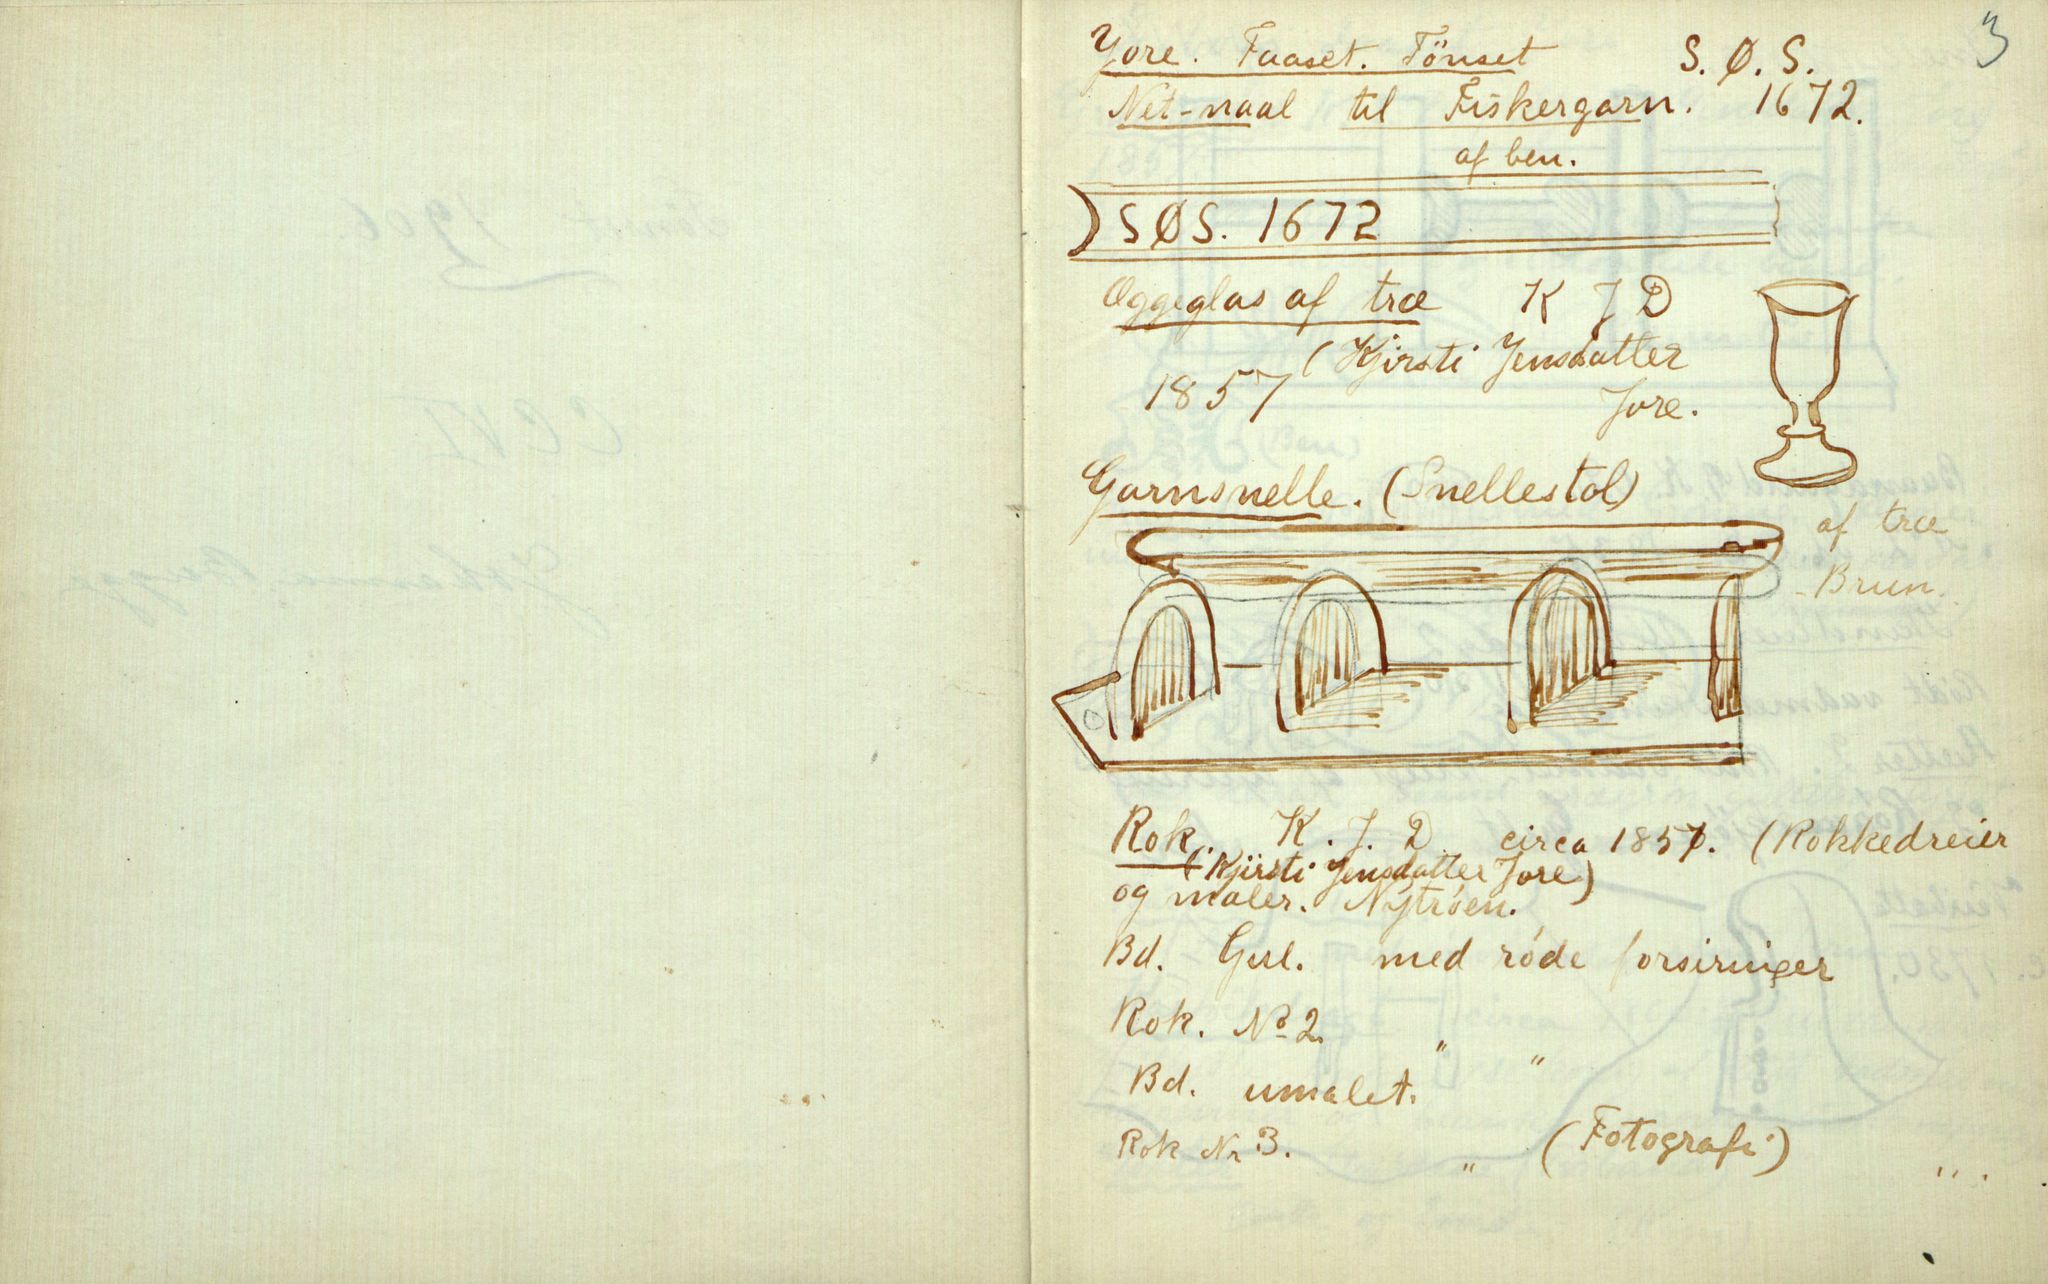 3
Jore. Faaset. Tönset S. Ø. S.
Net-naal til Fiskergarn. 1672.
af ben.
SØS. 1672
Æggeglas af træ K J D
(Kjirsti Jensdatter
1857 Jore.
Garnsnelle. (Snellestol)
af træ
Brun.
Rok. K. J. D. circa 1857. (Rokkedreier
(Kjirsti Jensdatter Jore)
og maler. Nytrøen.
Bd. Gul. med røde forsiringer
Rok. No 2. " "
Bd. umalet.
Rok Nr 3. " (Fotografi) "